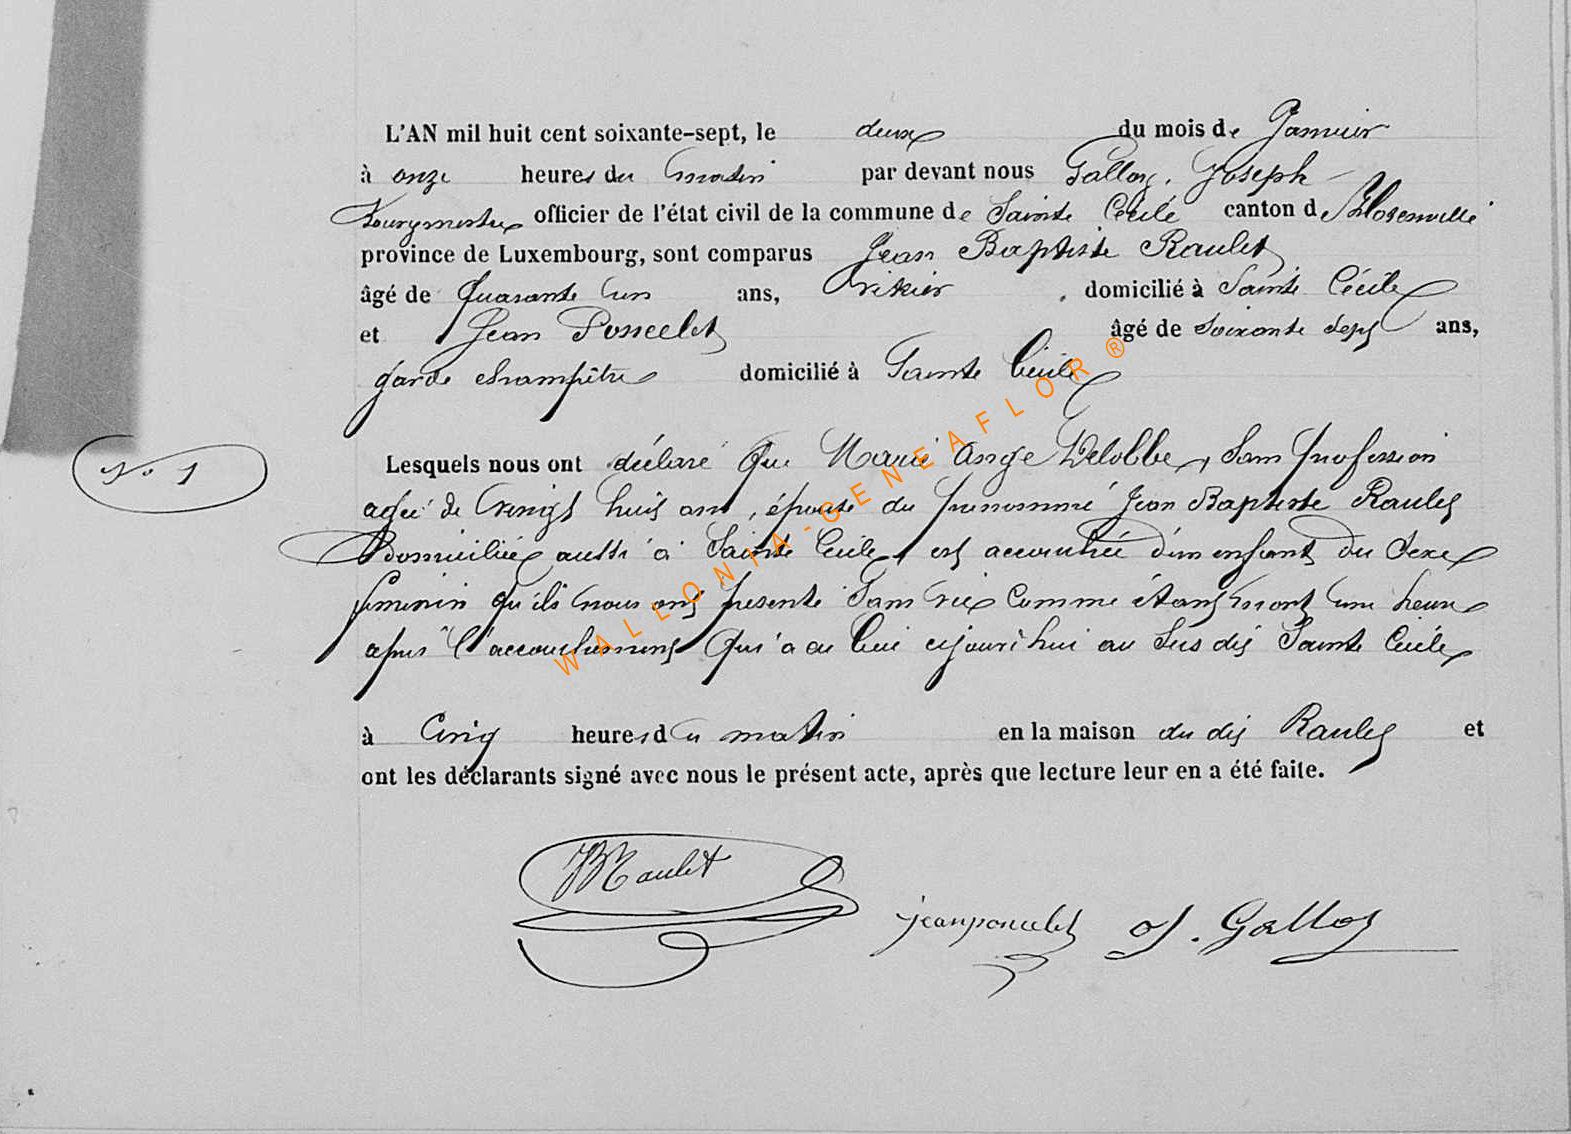 L'AN mil huit cent soixante-sept, le deux du mois de Janvier
à onze heures du matin par devant nous Galloy, Joseph
Bourgmestre officier de l'état civil de la commune de Sainte Cécile canton de Florenville
province de Luxembourg, sont comparus Jean Baptiste Raulet
âgé de quarante un ans, domicilié à Sainte Cécile
et Jean Poncelet âgé de soixante sept ans,
garde champêtre domicilié à Sainte Cécile
N° 1
Lesquels nous ont déclaré que Marie Ange Delobbe, sans profession
agée de vingt huit ans, épouse du prénommé Jean Baptiste Raulet
domiciliée aussi à Sainte Cécile, est accouchée d'un enfant du sexe
feminin qu'ils nous ont presenté sans vie comme étant mort une heure
après l'accouchement qui a eu lieu aujourd'hui au susdit Sainte Cécile
à cinq heures du matin en la maison du dit Raulet et
ont les déclarants signé avec nous le présent acte, après que lecture leur en a été faite.
JBRaulet
jeanponcelet J. Galloy
WALLONIA-GENEAFLOR ®